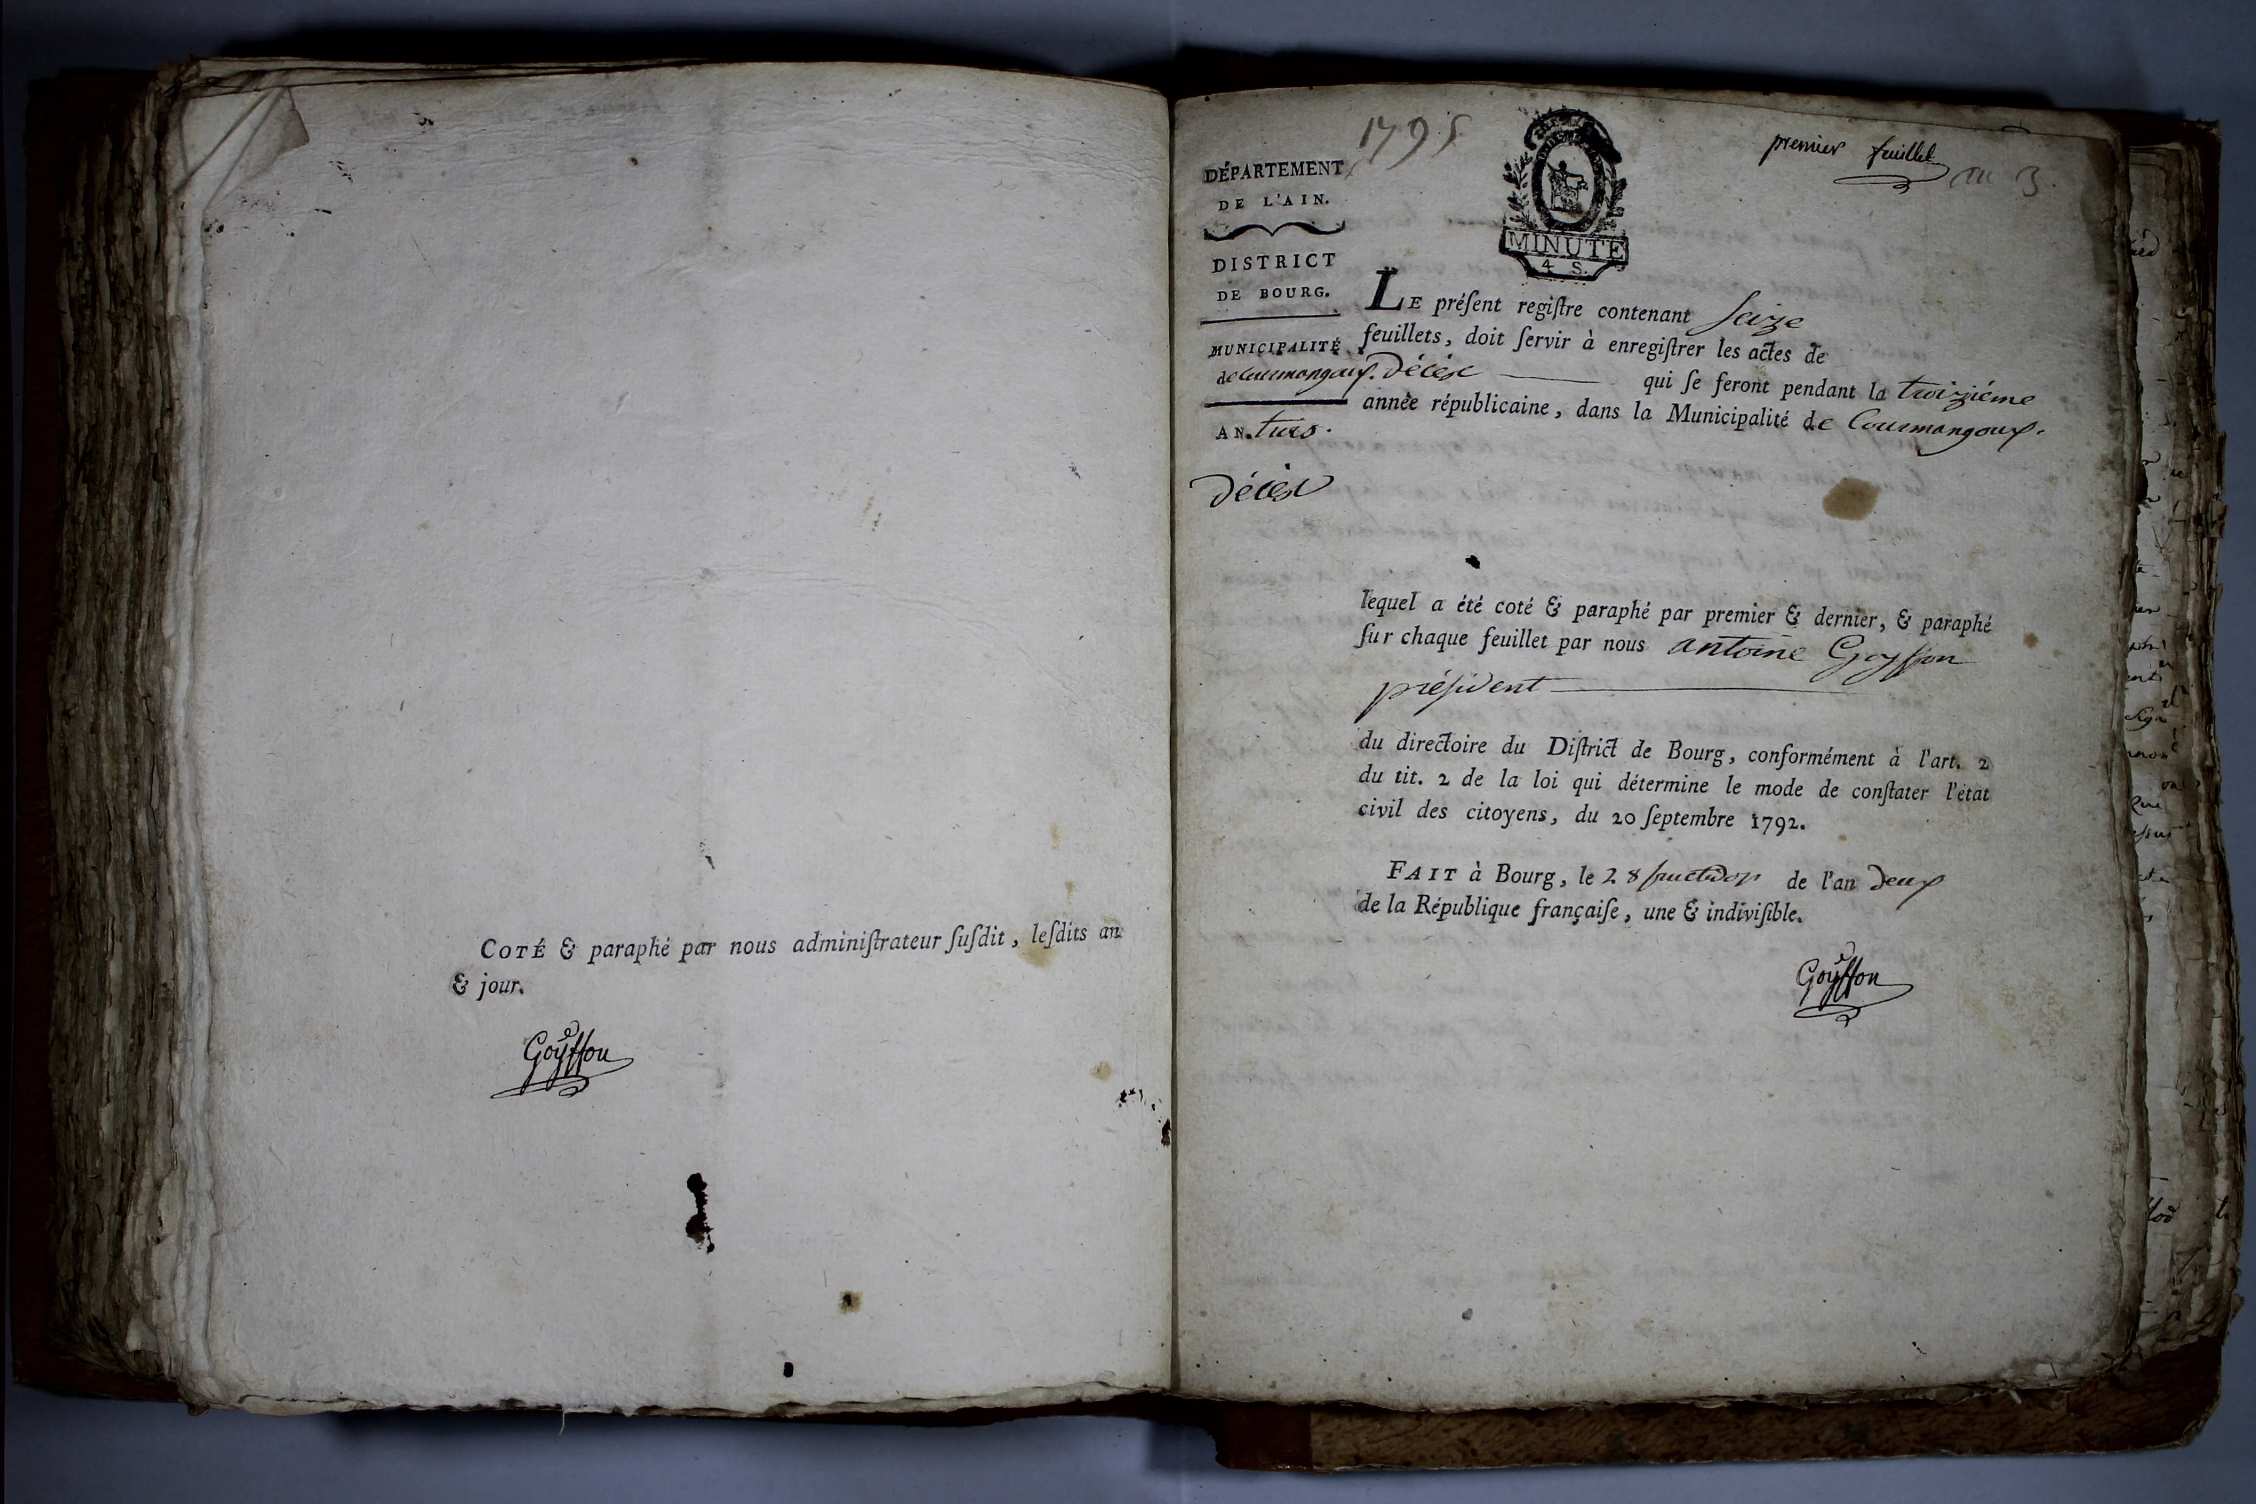 COTÉ & paraphé par nous adminiſtrateur ſuſdit, leſdits an
& jour.
Goyffon
1795
premier feuillet
an 3.
DÉPARTEMENT
DE L'AIN.
DISTRICT
DE BOURG.
MUNICIPALITÉ
de Courmangoux.
AN trois.
Décès
MINUTE
4 S.
LE préſent regiſtre contenant Seize
feuillets, doit ſervir à enregiſtrer les actes de
Décès qui ſe feront pendant la troizième
année républicaine, dans la Municipalité de Courmangoux.
lequel a été coté & paraphé par premier & dernier, & paraphé
ſur chaque feuillet par nous antoine Goyffon
préſident
du directoire du Diſtrict de Bourg, conformément à l'art. 2
du tit. 2 de la loi qui détermine le mode de conſtater l'état
civil des citoyens, du 20 ſeptembre 1792.
FAIT à Bourg, le 28 fructidor de l'an deux
de la République françaiſe, une & indiviſible.
Goyffon